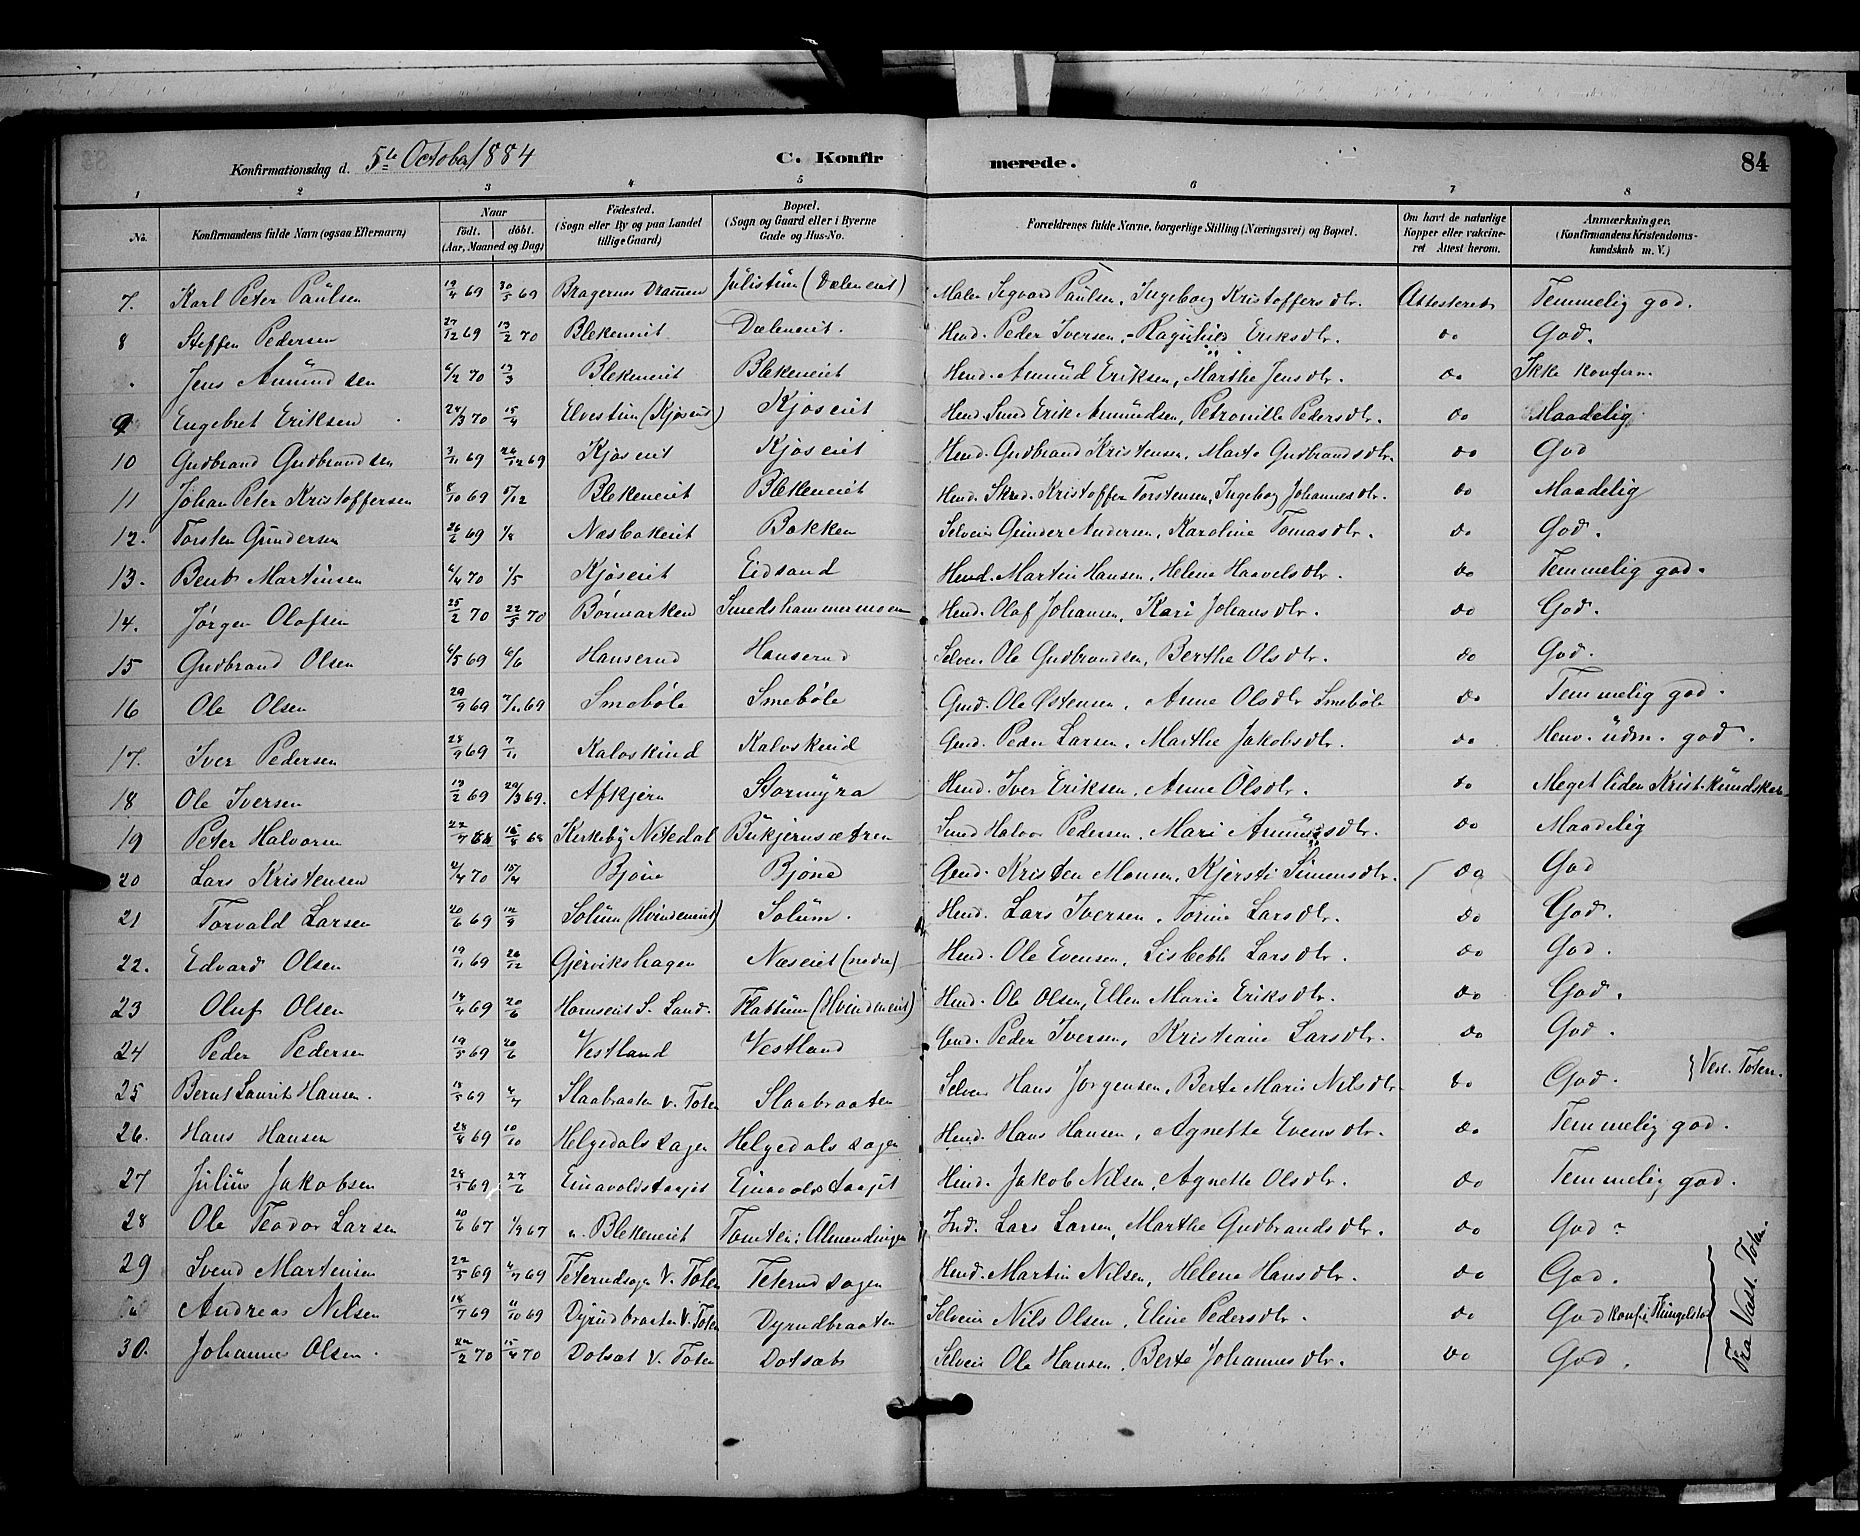 Konfirmationsdag d. 5te October 1884 C. Konfirmerede. 84
1 2 3 4 5 6 7 8
No. Konfirmandens fulde Navn (ogsaa Efternavn) Naar født. døbt. (Aar, Maaned og Dag) Fødested. (Sogn eller By og paa Landet tillige Gaard) Bopæl. (Sogn og Gaard eller i Byerne Gade og Hus-No. Forældrenes fulde Navne, borgerlige Stilling (Næringsvei) og Bopæl. Om havt de naturlige Kopper eller vakcineret Attest herom. Anmærkninger. (Konfirmandens Kristendomskundskab m. V.)
7. Karl Peter Paulsen 19/4 69 30/5 69 Bragernes Drammen Julistun (Dæleneiet) Maler Sigvard Paulsen, Ingeborg Kristoffersdtr. Attesteret Temmelig god.
8 Steffen Pedersen 27/12 69 13/2 70 Blekeneiet Dæleneiet. Hmd. Peder Iversen, Ragnhild Eriksdtr. do God.
Jens Amundsen 6/2 70 13/3 Blekeneiet Blekeneiet Hmd. Amund Eriksen, Marthe Jensdtr. do Ikke konferm.
9 Engebret Eriksen 24/3 70 15/4 Elvestun (Kjøseiet) Kjøseiet Hmd. Smed Erik Amundsen, Petronille Pedersdtr. do Maadelig
10 Gudbrand Gudbrandsen 3/11 69 26/12 69 Kjøseiet Kjøseiet Hmd. Gudbrand Kristensen, Marte Gudbrandsdtr. do God
11 Johan Peter Kristoffersen 8/10 69 5/12 Blekeneiet Blekeneiet Hmd. Skræd. Kristoffer Torstensen, Ingeborg Johannesdtr. do Maadelig
12. Torsten Gundersen 26/6 69 1/8 Næsbakeiet Bakken Selveier Gunder Andersen, Karoline Tomasdtr. do God.
13. Bent Martinsen 6/4 70 1/5 Kjøseiet Eidsand Hmd. Martin Hansen, Helene Haavelsdtr. do Temmelig god.
14. Jørgen Olafsen 25/2 70 22/5 70 Børmarken Smedshammermoen Hmd. Olaf Johansen, Kari Johansdtr. do God.
15 Gudbrand Olsen 6/5 69 6/6 Hanserud Hanserud Selvei. Ole Gudbrandsen, Berthe Olsdtr. do God.
16 Ole Olsen 29/9 69 7/11 69 Smebøle Smebøle Gmd. Ole Østensen, Anne Olsdtr Smebøle do Temmelig god.
17. Iver Pedersen 28/9 69 7/11 Kalvskind Kalvskind Gmd. Peder Larsen, Marthe Jakobsdtr. do Henv. udm. god.
18 Ole Iversen 19/2 69 29/3 69. Afkjern Stormyra Hmd. Iver Eriksen, Anne Olsdtr. do Meget liden Krist.kundskab
19 Peter Halvorsen 22/7 68 16/8 68 Kirkeby Nitedal Bukjernsætren Smed Halvor Pedersen, Mari Amundsdtr. do Maadelig
20 Lars Kristensen 2/4 70 15/4 Bjøne Bjøne Gmd. Kristen Monsen, Kjersti Simensdtr. do God
21 Torvald Larsen 20/6 69 12/9 Solum (Hvindeneiet) Solum. Hmd. Lars Iversen, Torine Larsdtr. do God.
22. Edvard Olsen 19/11 69 26/12 Gjørvikshagen Næseiet (nedre) Hmd. Ole Evensen, Lisbeth Larsdtr. do God.
23 Oluf Olsen 14/4 69 20/6 Hornseiet S. Land. Flattum (Hvindeneiet) Hmd. Ole Olsen, Ellen Marie Eriksdtr. do God.
24 Peder Pedersen 19/5 69 20/6 Vestland Vestland Gmd. Peder Iversen, Kristiane Larsdtr. do God.
25 Bernt Laurits Hansen. 18/5 69 4/7 Slaabraaten V. Toten Slaabraaten Selvei Hans Jørgensen, Berte Marie Nilsdtr. do God. Vest. Toten.
26. Hans Hansen 28/8 69 10/10 Helgedalssagen Helgedalssagen Hmd. Hans Hansen, Agnette Evensdtr. do Temmelig god.
27 Julius Jakobsen 28/5 69 27/6 Einavoldstaajet Einavoldstaajet Hmd. Jakob Nilsen, Agnette Olsdtr. do Temmelig god.
28 Ole Teodor Larsen 10/6 67 1/9 67 n. Blekeneiet Tomten i Almendingen Ind. Lars Larsen, Marthe Gudbrandsdtr. do God.
29 Svend Martinsen 22/5 69 4/7 69 Teterudsagen V. Toten Teterudsagen Hmd. Martin Nilsen, Helene Hansdtr. do God.
Andreas Nilsen 18/7 69 11/10 69 Dyrudbraaten V. Toten Dyrudbraaten Selveier Nils Olsen, Eline Pedersdtr. do God Konf. i Thingelstad
30. Johannes Olsen. 22/2 70 15/4 70 Dotset V. Toten Dotset Selveier Ole Hansen, Berte Johannesdtr. do God.
Fra Vest. Toten